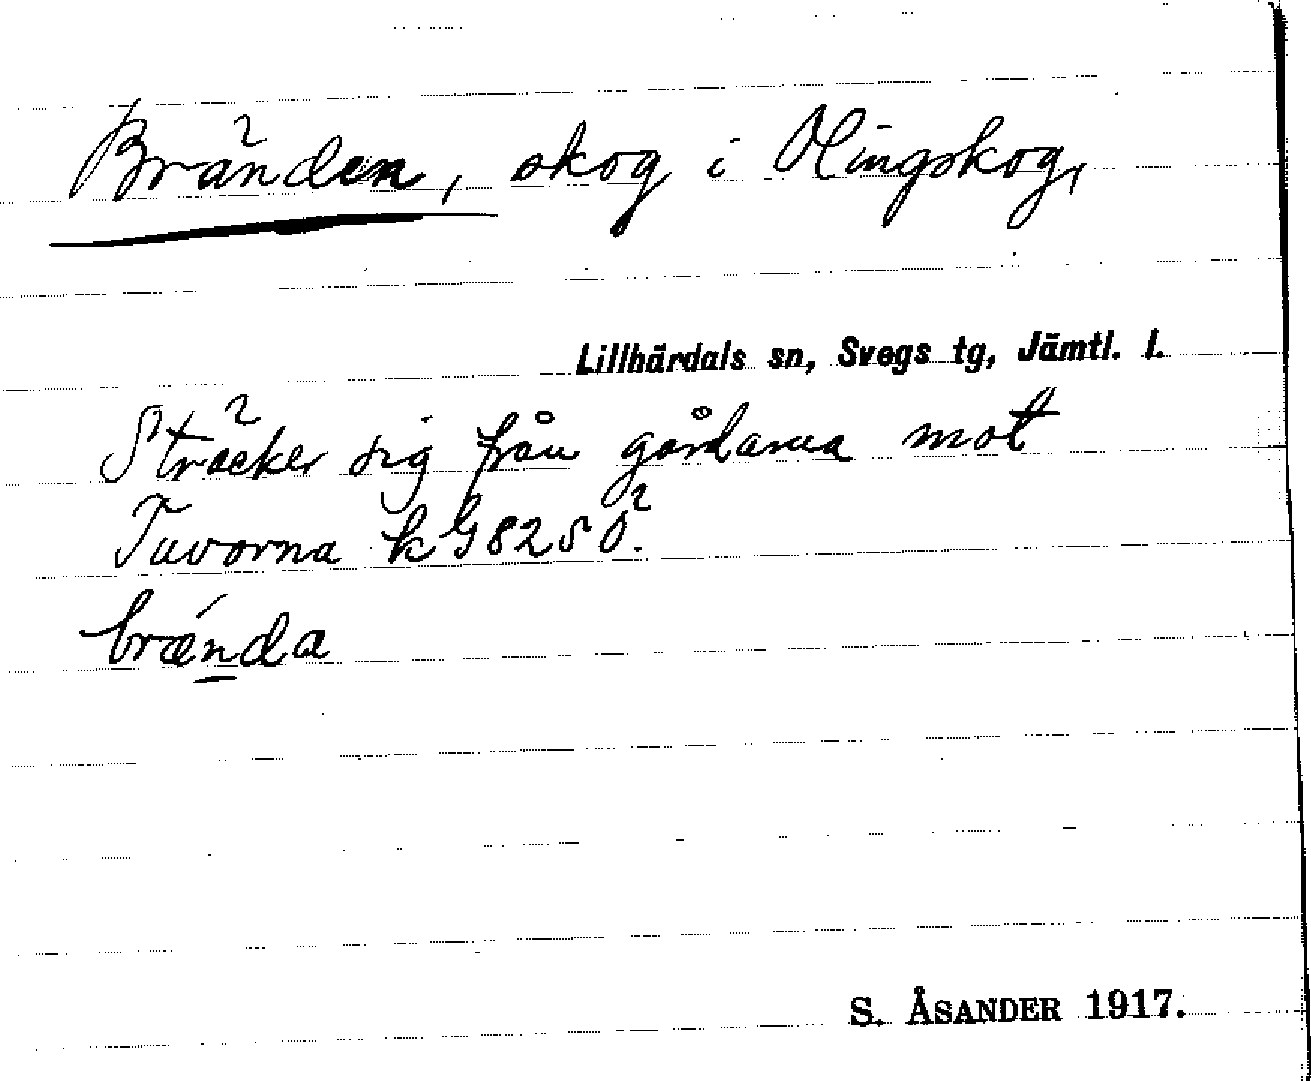 Bränden, skog i Olingskog,
Lillhärdals sn, Svegs tg, Jämtl. l.
Sträcker sig från gårdarna mot
Tuvorna k G 8250.
brǽnda
S. ÅSANDER 1917.